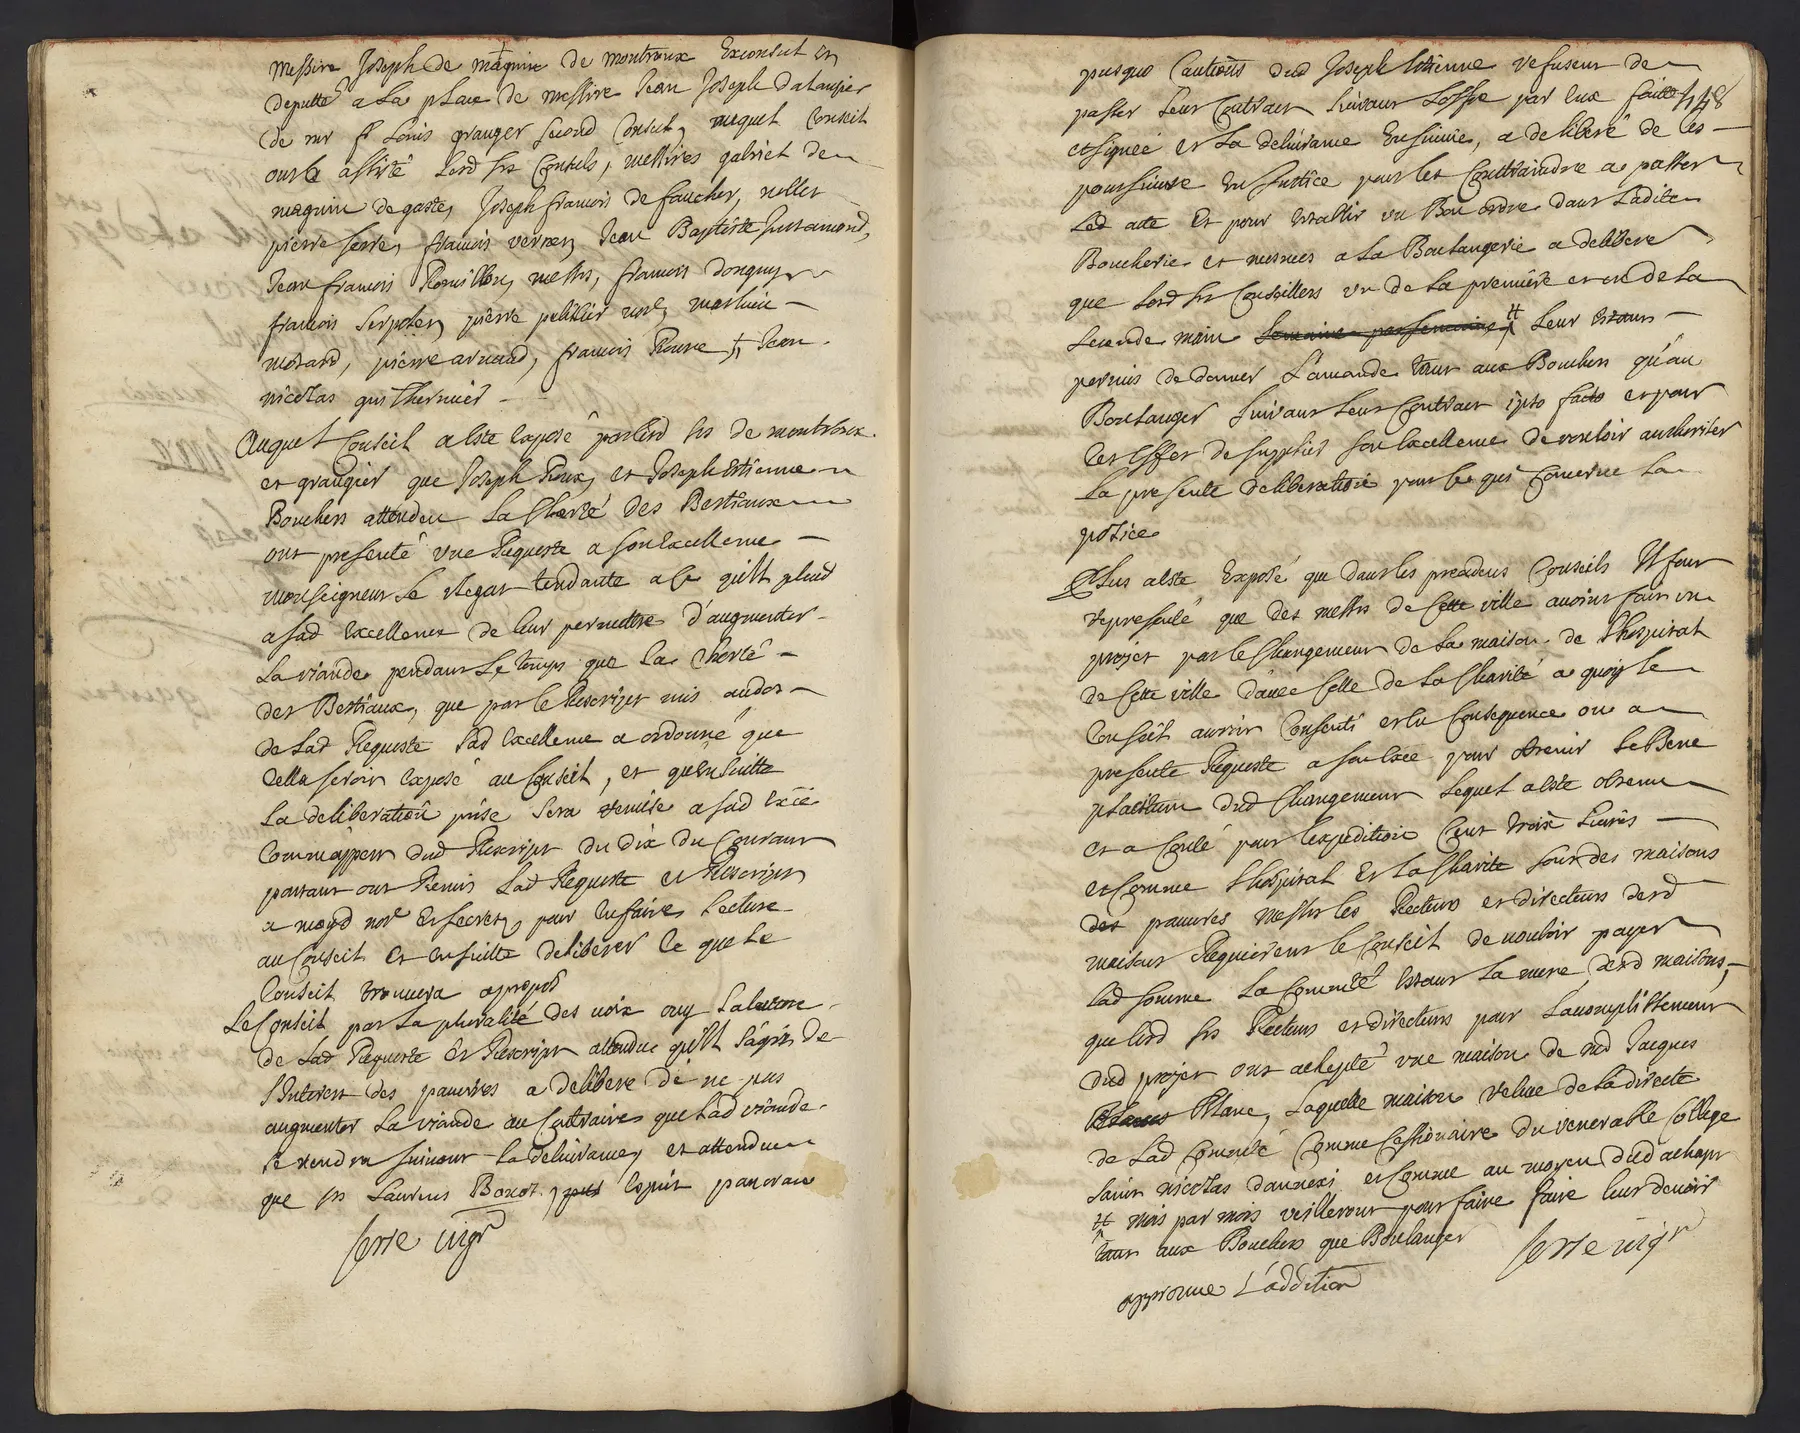 messire Joseph de maquin de montroux Exconsul et
deputté a la place de messire Jean Joseph
de mr fr Louis granger second Consul, auquel Conseil
ont assisté lesd srs Consuls, messires gabriel de
maquin de gaste, Joseph francois de faucher, noller
pierre serre, francois verner, Jean Baptiste Jussamond,
Jean francois Roussillon, messrs, francois donguy
francois serpoler, pierre pellilier, mathieu
motard, pierre arnaud, francois Roure Jean
nicolas quithermier
Auquel Conseil a esté exposé par lesd srs de montroux
et grangier que Joseph Roux, et Joseph Estienne
Bouchers attendeu La Cherté des Bestiaux
ont presenté une Requeste a son Excellence
monseigneur Le vilegat tendante a ce qu'ill pleud
a sad Excellence de leur permettre d'augmenter
La viande pendant Le temps que la Cherté
des Bestiaux, que par le Rescript mis au dos
de Lad Requeste sad Excellence a ordonné que
cella seroit exposé au Conseil, et qu'ensuitte
La deliberation prise sera remise a sad Exce
Comm'appert dud Rescript du dix du Courant
portant ont Remis Lad Requeste et Rescript
a moyd nore et secret, pour en faire Lecture
au Conseil et ensuitte deliberer ce que Le
Conseil trouvera a propos
Le Conseil par La pluralité des voix ouy La lecture
de Lad Requeste et Rescript attendu qu'ill s'agit de
l'Interest des pauvres a delibere de ne pas
augmenter La viande au Contraire que Lad viande
se vendra suivant la delivrance, et attendu
que srs Laurens Bonot, esprit
serre vigr
presque Cautions dud Joseph Estienne refusent de
passer leur Contract suivant L'offre par eux faitte 148
et signée et La delivrance Ensuivie, a deliberé de les
poursuivre en Justice pour les Contraindre a passer
Led acte Et pour establir un Bon ordre dans Ladite
Boucherie et mesmes a La Boulangerie a deliberé
que Lesd srs Conseillers un de La premiere et un de La
seconde main semaine par semaine # Leur estant
permis de donner L'amande tant aux Bouchers qu'au
Boulanger suivant leur Contract ipso facto et pour
cet Effet de supplier son Excellence de vouloir authoriser
La presente deliberation pour ce qui Concerne La
police
Plus a esté Exposé que dans les precedens Conseils Il fut
representé que des messrs de Cette ville avoint fait un
projet par le Changement de La maison de L'hospital
de Cette ville d'avec Celle de La Charité a quoy le
Conseil auroit Consenti et en Consequence on a
presenté Requeste a son Exce pour obtenir Le Bene
placitum dud Changement Lequel a esté obtenu
et a Couté pour l'expedition Cent trois livres
et Comme L'hospital et La Charité sont des maisons
des pauvres messrs les Recteurs et directeurs desd
maisons Requierent le Conseil de vouloir payer
Lad somme La Comunté estant La mere desd maisons,
que lesd srs Recteurs et directeurs pour L'accomplissement
dud projet ont achepté une maison de md Jacques
Blanc, Laquelle maison releve de La directe
de Lad Comunté Comme Cessionaire du venerable College
saint nicolas dannexi et Comme au moyen dud achapt
# mois par mois veilleront pour faire faire leur devoir
tant aux Bouchers que Boulanger serre vigr
approuve L'addition